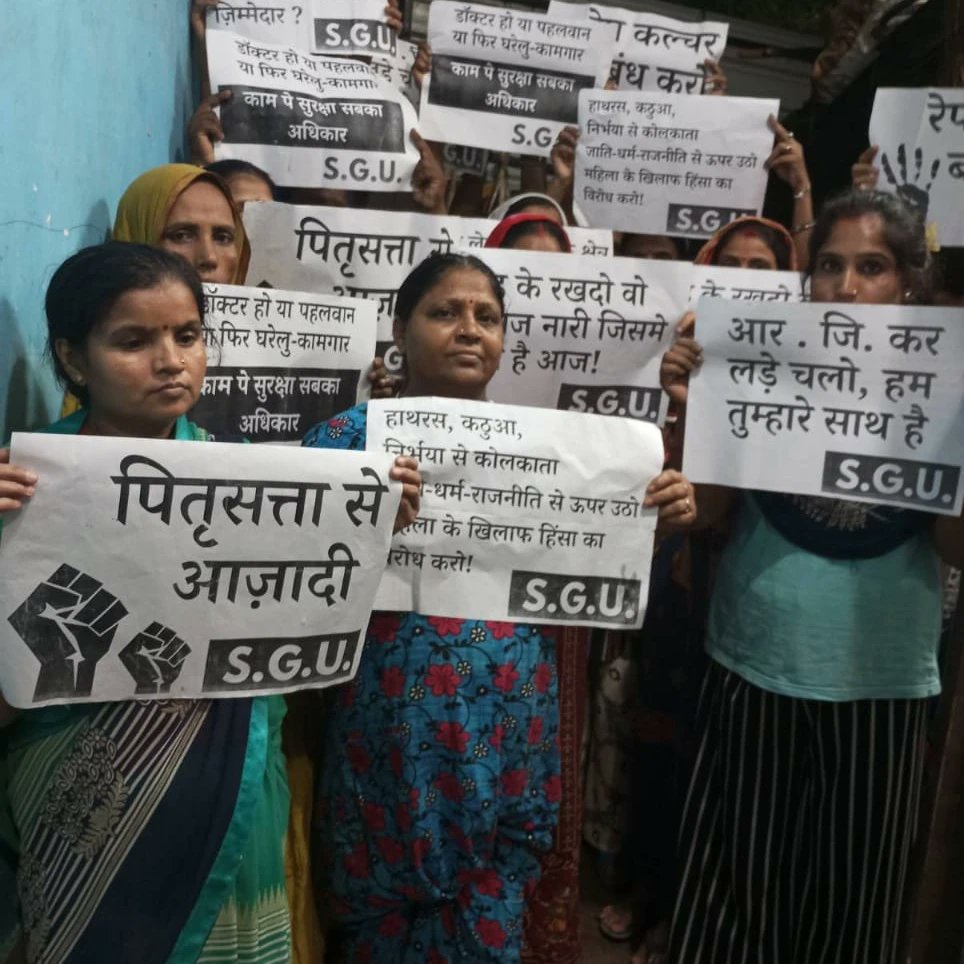 ज़िम्मेदार ?
S.G.U.
डॉक्टर हो या पहलवान
या फिर घरेलु-कामगार
काम पे सुरक्षा सबका
अधिकार
S.G.U.
डॉक्टर हो या पहलवान
या फिर घरेलु-कामगार
काम पे सुरक्षा सबका
अधिकार
S.G.
कल्चर
बंध करो
हाथरस, कठुआ,
निर्भया से कोलकाता
जाति-धर्म-राजनीति से ऊपर उठो
महिला के खिलाफ हिंसा का
विरोध करो!
S.G.U.
रेप
पितृसत्ता से
के रखदो वो
नारी जिसमे
है आज!
S.G.U.
के रखदो
डॉक्टर हो या पहलवान
फिर घरेलु-कामगार
काम पे सुरक्षा सबका
अधिकार
आर . जि. कर
लड़े चलो, हम
तुम्हारे साथ है
S.G.U.
हाथरस, कठुआ,
निर्भया से कोलकाता
-धर्म-राजनीति से ऊपर उठो
के खिलाफ हिंसा का
करो!
S.G.U.
पितृसत्ता से
आज़ादी
S.G.U.